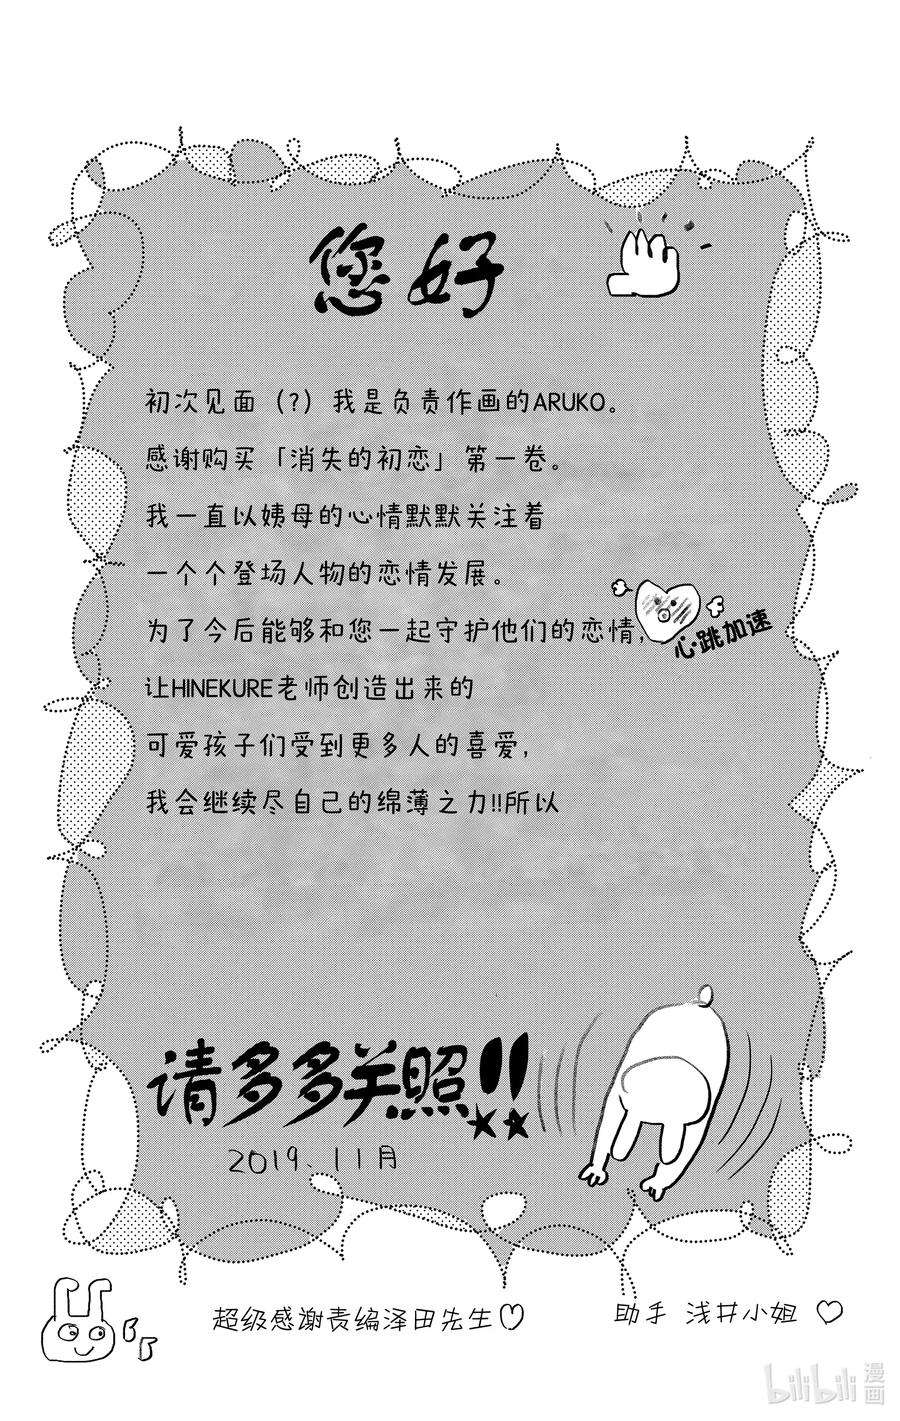 您好
初次见面（?）我是负责作画的ARUKO。
感谢购买「消失的初恋」第一卷。
我一直以姨母的心情默默关注着
一个个登场人物的恋情发展。
为了今后能够和您一起守护他们的恋情,
心跳加速
让HINEKURE老师创造出来的
可爱孩子们受到更多人的喜爱,
我会继续尽自己的绵薄之力!!所以
请多多关照!!
2019.11月
超级感谢责编泽田先生♡
助手 浅井小姐 ♡
bilibili 漫画